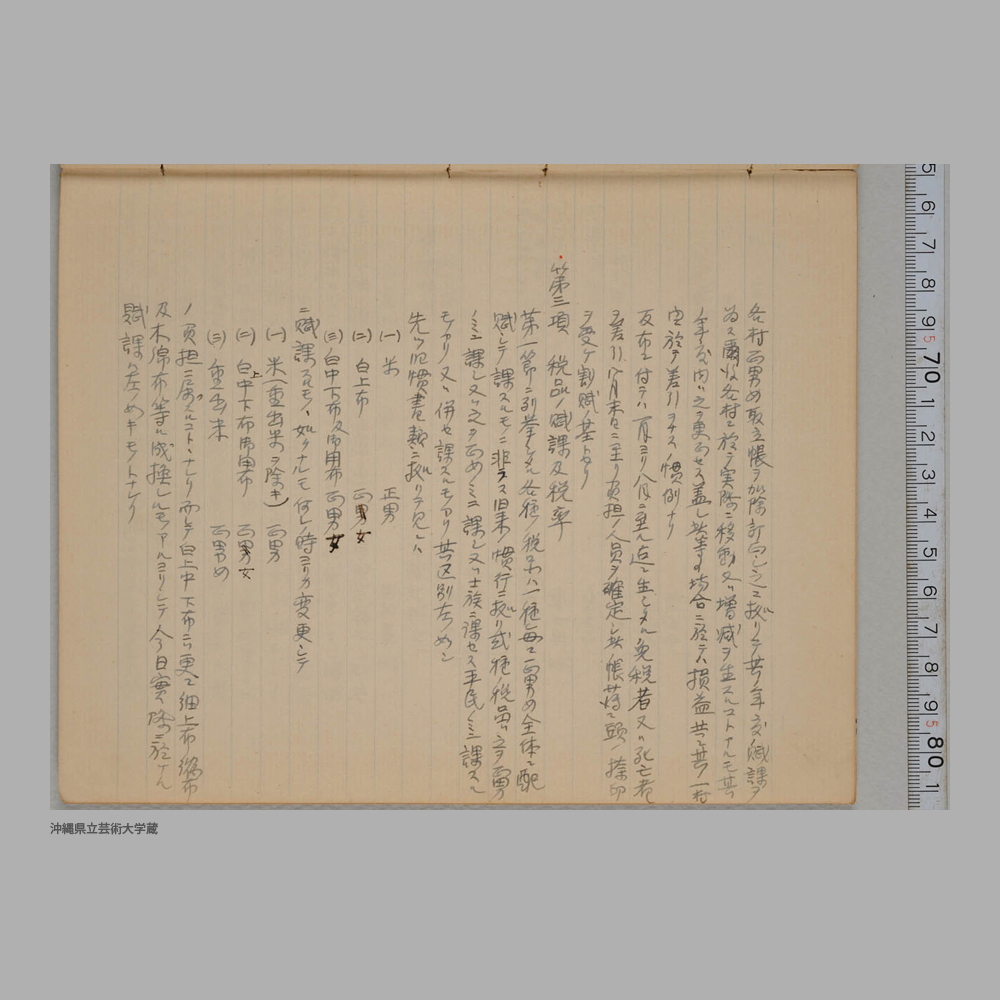 各村正男女取立帳ヲ加除訂正シ之ニ拠リテ其ノ年度ノ賦課ヲ
為ス爾後各村ニ於テ実際ニ移動又ハ増減ヲ生スルコトアルモ其ノ
年度内ハ之ヲ更正セス蓋シ此等ノ場合ニ於テハ損益共ニ其ノ一村
ニ於テ差引ヲナス慣例ナリ
反布ニ付テハ一月ヨリ八月ニ至ル迄ニ生シタル免税者又ハ死亡者
ヲ差引八月末日ニ至リ負担ノ人員ヲ確定シ此帳簿ニ頭ノ捺印
ヲ受ケ割賦ノ基トナリ
第三項 税品ノ賦課及税率
第一節ニ列挙シタル各種ノ税品ハ一種毎ニ正男女全体ニ配
賦シテ課スルモノニ非ラス旧来ノ慣行ニ拠リ或種ノ税品ハ正男
ノミニ課シ又ハ之ヲ正女ノミニ課シ又ハ士族ニ課セス平民ノミニ課スル
モノアリ又ハ併セ課スルモノアリ其区別左ノ如シ
先ツ旧慣書類ニ拠リテ見レハ
(一) 米 正男
(二) 白上布 正男女
(三) 白中下布及御用布 正男女
ニ賦課スルモノヽ如クナルモ何レノ時ヨリカ変更シテ
(一) 米(重出米ヲ除キ) 正男
(二) 白上中下布御用布 正男女
(三) 重出米 正男女
ノ負担ニ属スルコトヽナレリ而シテ白上中下布ハ更ニ細上布縮布
及木綿布等ニ成換シルモノアルヨリシテ今日實際ニ於ケル
賦課ハ左ノ如キモノトナレリ
5 6 7 8 9 70 1 2 3 4 5 6 7 8 9 80 1
沖縄県立芸術大学蔵